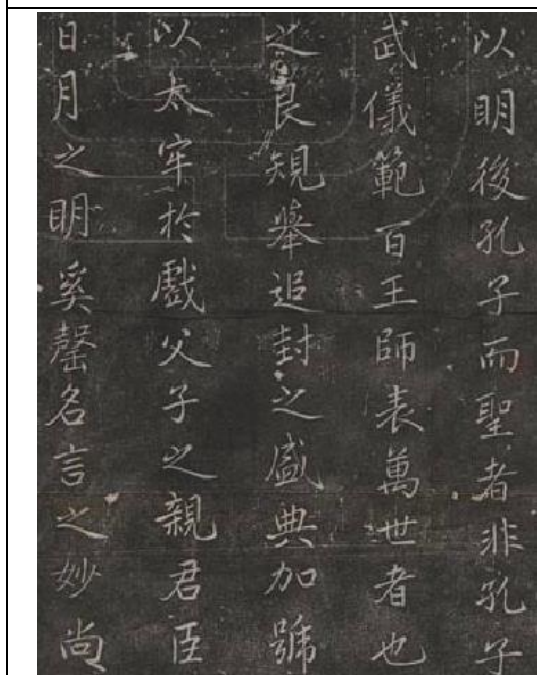 以明後孔子而聖者非孔子
武儀範百王師表萬世者也
之良規舉追封之盛典加號
以太牢於戲父子之親君臣
日月之明奚罄名言之妙尚